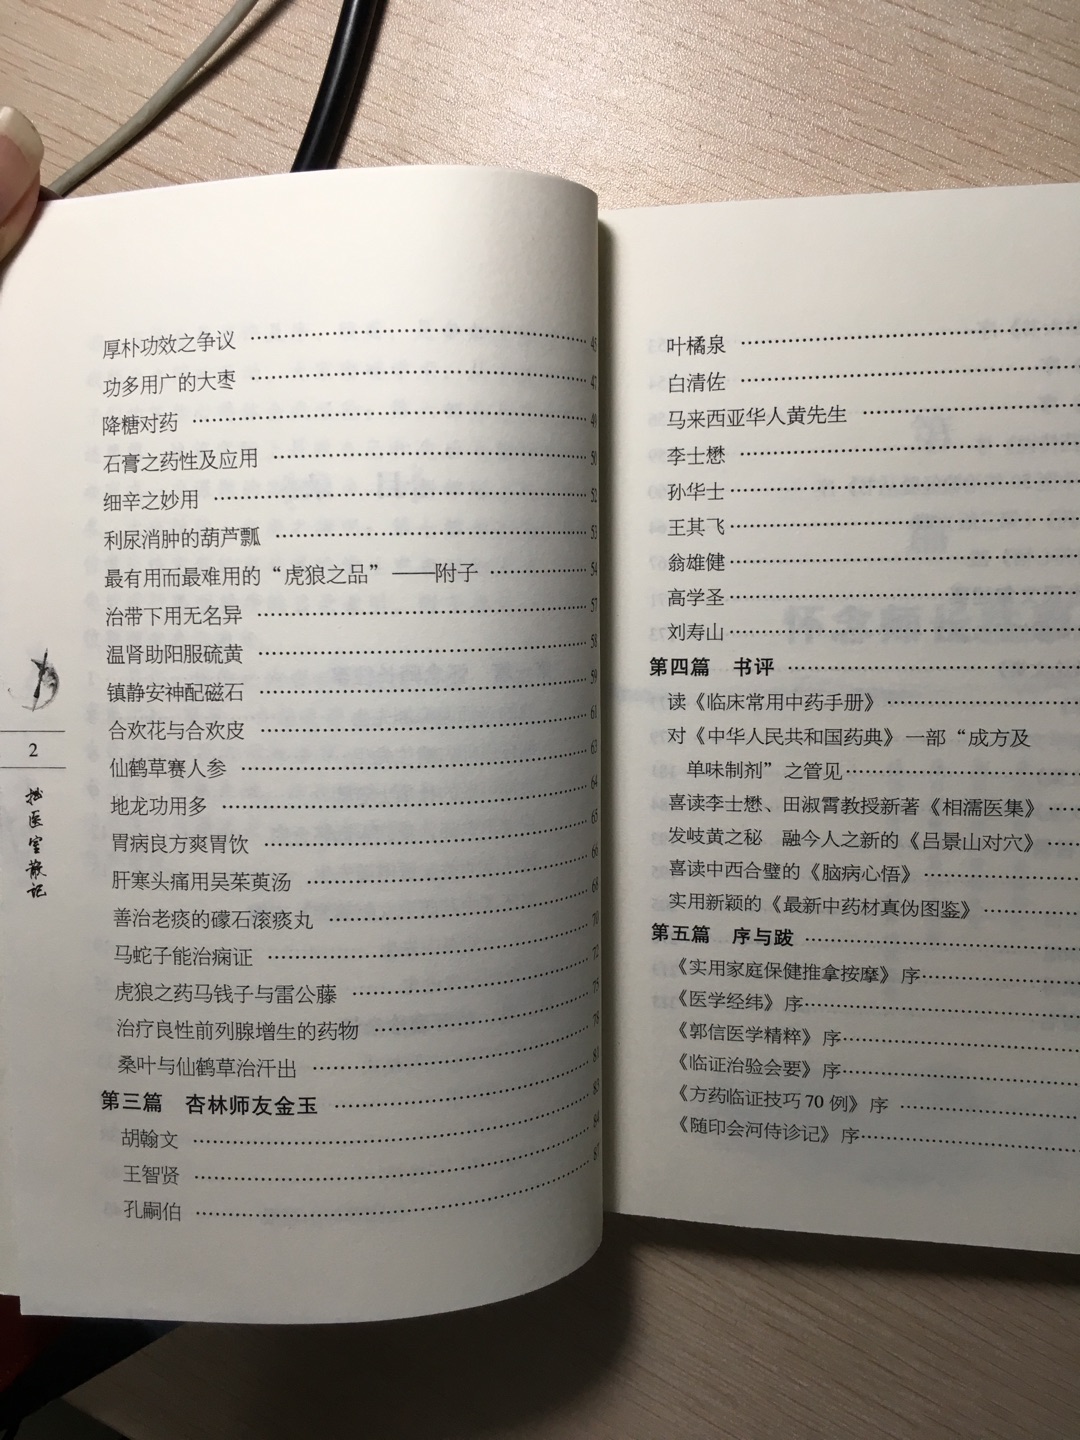 厚朴功效之争议 …… 45
功多用广的大枣 …… 47
降糖对药 …… 49
石膏之药性及应用 …… 50
细辛之妙用 …… 52
利尿消肿的葫芦瓢 …… 53
最有用而最难用的“虎狼之品”——附子 …… 54
治带下用无名异 …… 57
温肾助阳服硫黄 …… 58
镇静安神配磁石 …… 59
合欢花与合欢皮 …… 61
仙鹤草赛人参 …… 63
地龙功用多 …… 64
胃病良方爽胃饮 …… 65
肝寒头痛用吴茱萸汤 …… 66
善治老痰的礞石滚痰丸 …… 68
马蛇子能治痫证 …… 70
虎狼之药马钱子与雷公藤 …… 72
治疗良性前列腺增生的药物 …… 75
桑叶与仙鹤草治汗出 …… 78
第三篇 杏林师友金玉 …… 81
胡翰文 …… 83
王智贤 …… 84
孔嗣伯 …… 87
2
医室散记
叶橘泉 ……
白清佐 ……
马来西亚华人黄先生 ……
李士懋 ……
孙华士 ……
王其飞 ……
翁雄健 ……
高学圣 ……
刘寿山 ……
第四篇 书评 ……
读《临床常用中药手册》 ……
对《中华人民共和国药典》一部“成方及
单味制剂”之管见 ……
喜读李士懋、田淑霄教授新著《相濡医集》 ……
发岐黄之秘 融今人之新的《吕景山对穴》 ……
喜读中西合璧的《脑病心悟》 ……
实用新颖的《最新中药材真伪图鉴》 ……
第五篇 序与跋 ……
《实用家庭保健推拿按摩》序 ……
《医学经纬》序 ……
《郭信医学精粹》序 ……
《临证治验会要》序 ……
《方药临证技巧70例》序 ……
《随印会河侍诊记》序 ……